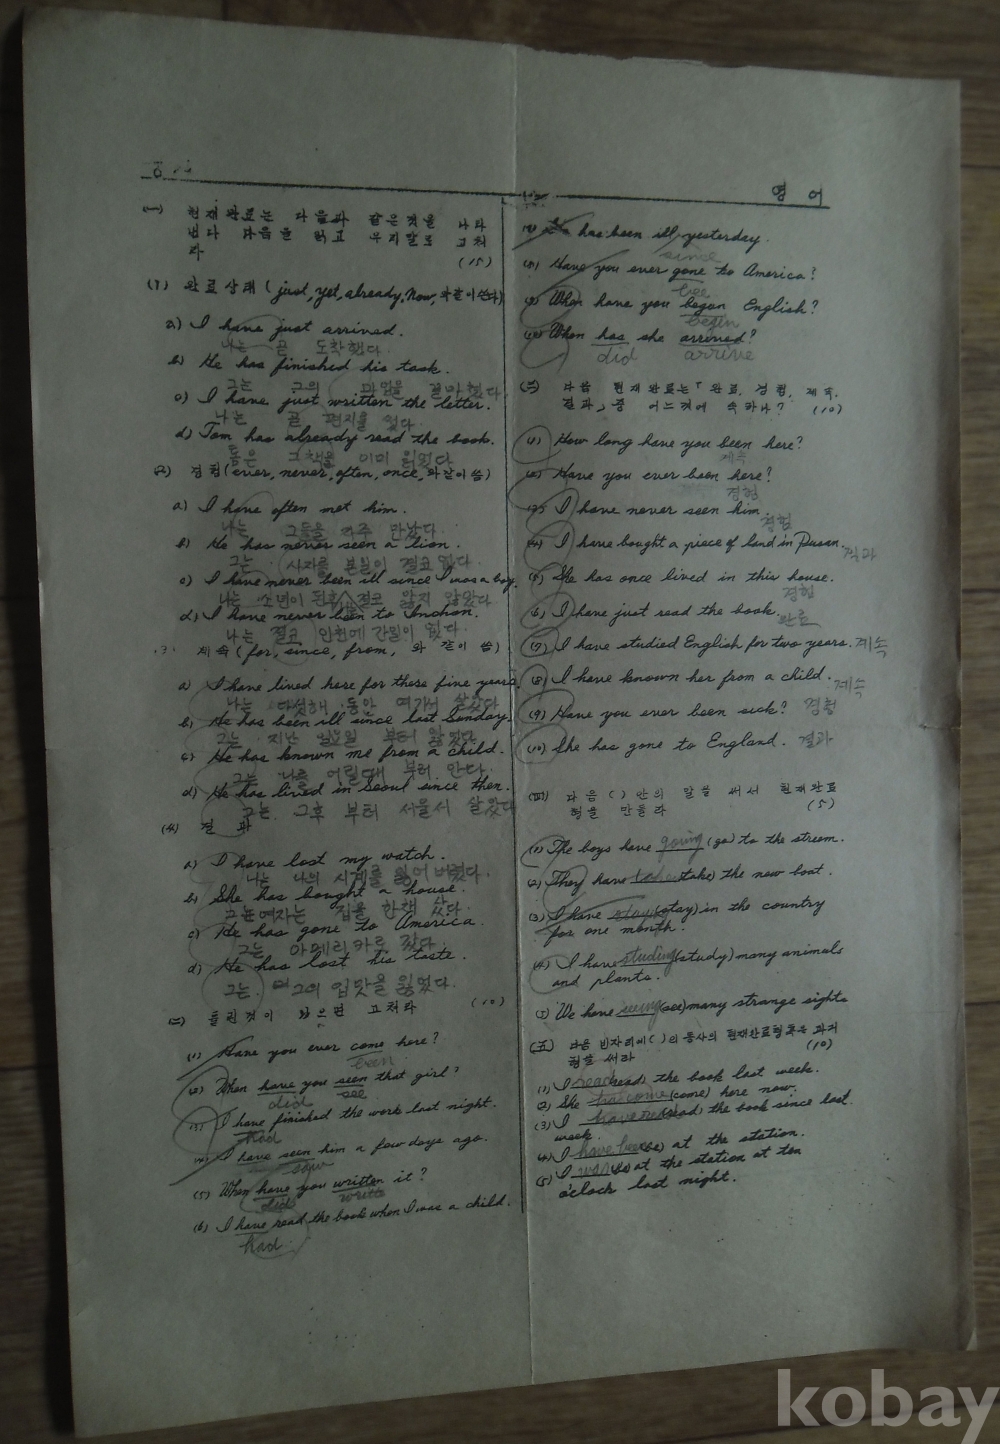 영 어
(一) 현재완료는 다음과 같은것을 나타
낸다 다음을 읽고 우리말로 고쳐
라 (15)
(1) 완료상태 (just, yet, already, now, 와같이쓴다)
a) I have just arrived.
나는 곧 도착했다.
b) He has finished his task.
그는 그의 과업을 끝마쳤다.
c) I have just written the letter.
나는 곧 편지를 썼다.
d) Tom has already read the book.
톰은 그책을 이미 읽었다.
(2) 경험(ever, never, often, once, 와같이 씀)
a) I have often met him.
나는 그들을 자주 만났다.
b) He has never seen a lion.
그는 사자를 본일이 결코 없다.
c) I have never been ill since I was a boy.
나는 소년이 된후 결코 앓지 않았다
d) I have never been to Inchon.
나는 결코 인천에 간일이 없다.
(3) 계속(for, since, from, 와 같이 씀)
a) I have lived here for these five years.
나는 다섯해 동안 여기서 살았다
b) He has been ill since last Sunday.
그는 지난 일요일 부터 앓았다.
c) He has known me from a child.
그는 나를 어릴때 부터 안다.
d) He has lived in Seoul since then.
그는 그후 부터 서울서 살았다
(4) 결 과
a) I have lost my watch.
나는 나의 시계를 잃어 버렸다.
b) She has bought a house.
그는여자는 집을 한채 샀다.
c) He has gone to America.
그는 아메리카로 갔다.
d) He has lost his taste.
그는 그의 입맛을 잃었다.
(二) 틀린것이 있으면 고쳐라 (10)
(1) Have you ever come here?
been
(2) When have you seen that girl?
did see
(3) I have finished the work last night.
had
(4) I have seen him a few days ago.
saw
(5) When have you written it?
did write
(6) I have read the book when I was a child.
had
(7) has been ill yesterday.
since
(8) Have you ever gone to America?
bee
(9) When have you began English?
begin
(10) When has she arrived?
did arrive
(三) 다음 현재완료는「완료, 경험, 계속,
결과」중 어느것에 속하나? (10)
(1) How long have you been here?
계속
(2) Have you ever been here?
경험
(3) I have never seen him.
경험
(4) I have bought a piece of land in Pusan. 결과
(5) She has once lived in this house.
경험
(6) I have just read the book.
완료
(7) I have studied English for two years. 계속
(8) I have known her from a child. 계속
(9) Have you ever been sick? 경험
(10) She has gone to England. 결과
(四) 다음 ( ) 안의 말을 써서 현재완료
형을 만들라 (5)
(1) The boys have going (go) to the stream.
(2) They have (take) the new boat.
(3) I have stay (stay) in the country
for one month.
(4) I have studing (study) many animals
and plants.
(5) We have seeing (see) many strange sights
(五) 다음 빈자리에 ( ) 의 동사의 현재완료형혹은 과거
형을 써라 (10)
(1) I read (read) the book last week.
(2) She has come (come) here now.
(3) I have read (read) the book since last
week.
(4) I have bee (be) at the station.
(5) I was (be) at the station at ten
o'clock last night.
kobay